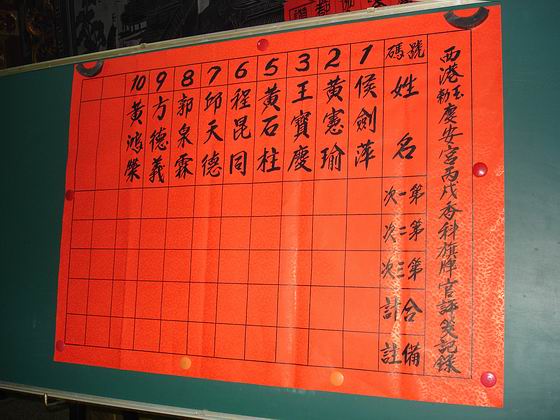 西港玉勅慶安宮丙戌香科旗牌官評筊記錄
號碼
姓名
第一次
第二次
第三次
合計
備註
1 侯劍萍
2 黃憲瑜
3 王寶慶
5 黃石柱
6 程昆同
7 邱天德
8 郭泉霖
9 方德義
10 黃鴻榮